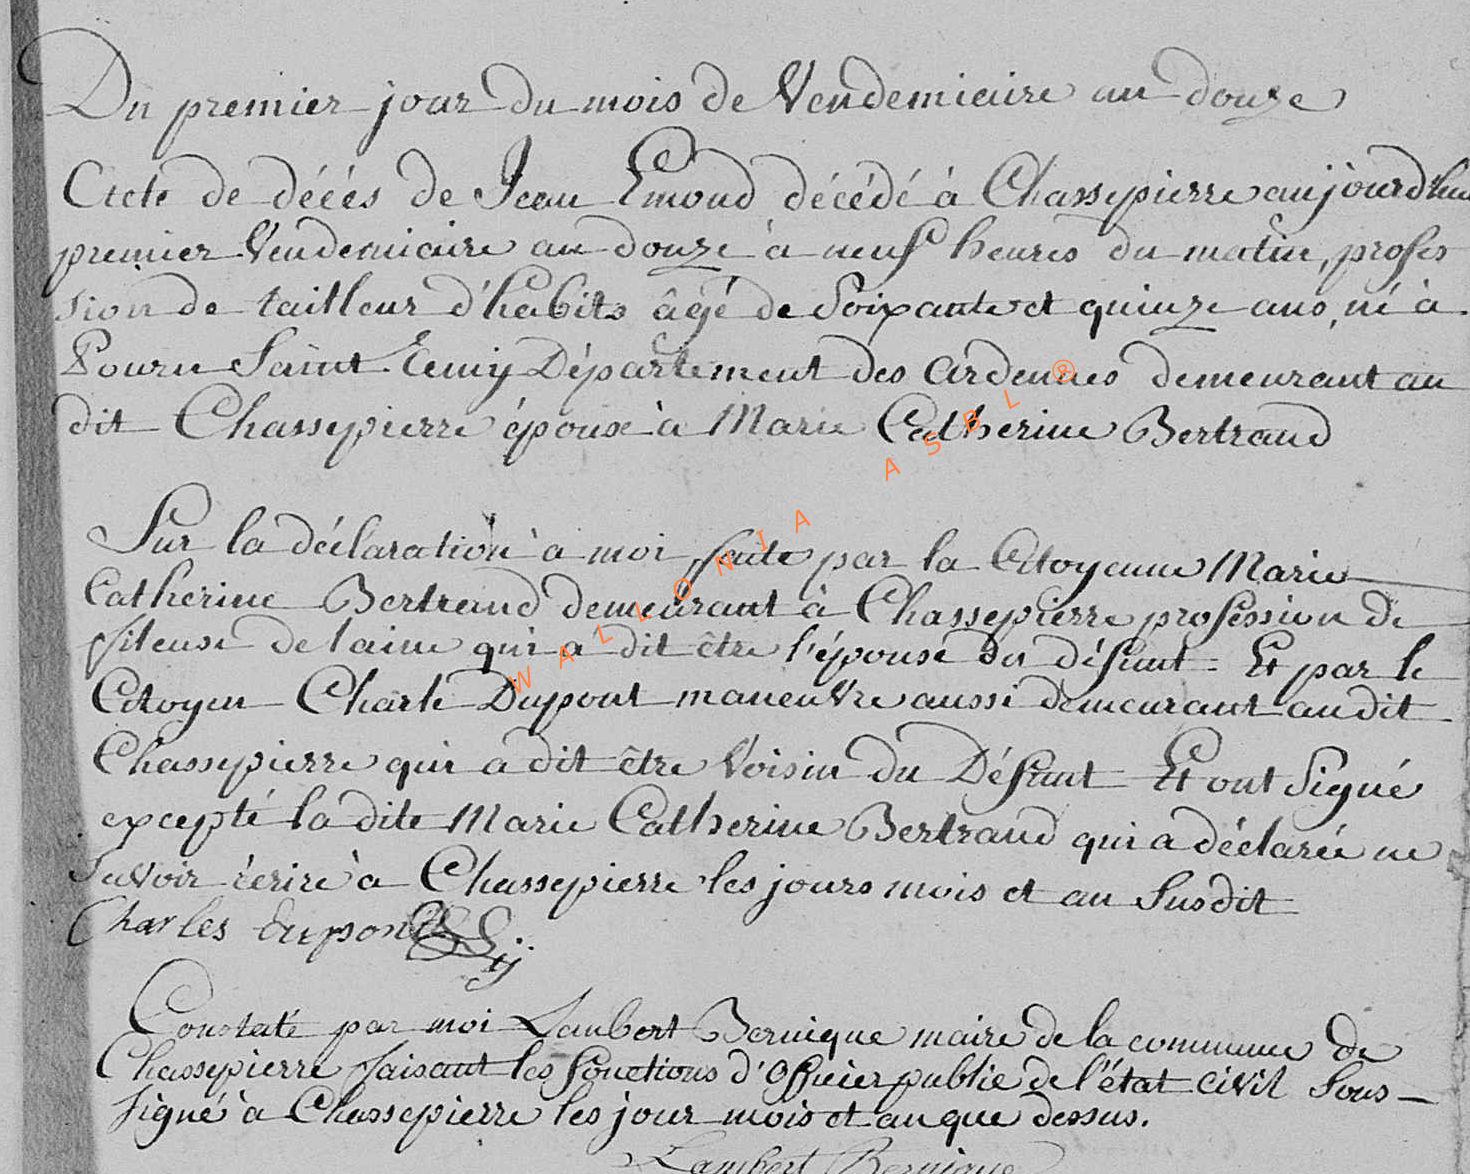 Du premier jour du mois de Vendemiaire an douze
Acte de décés de Jean Emond décédé à Chassepierre aujourd'hui
premier Vendemiaire an douze à neuf heures du matin, profes
sion de tailleur d'habits âgé de Soixante et quinze ans, né à
Pouru Saint Remy Département des ardennes demeurant au
dit Chassepierre époux à Marie Catherine Bertrand
Sur la déclaration à moi faite par la Citoyenne Marie
Catherine Bertrand demeurant à Chassepierre profession de
fileuse de laine qui a dit être l'épouse du défunt Et par le
Citoyen Charle Dupont maneuvre aussi demeurant audit
Chassepierre qui a dit être Voisin du Défunt Et ont Signé
excepté la dite Marie Catherine Bertrand qui a déclarée ne
Savoir écrire à Chassepierre les jours mois et an Susdit
Charles dupont
Constaté par moi Lambert Bernique maire de la commune de
Chassepierre faisant les fonctions d'Officier public de l'état civil Sous-
signé à Chassepierre les jour mois et an que dessus.
Lambert Bernique
WALLONIA ASBL ®